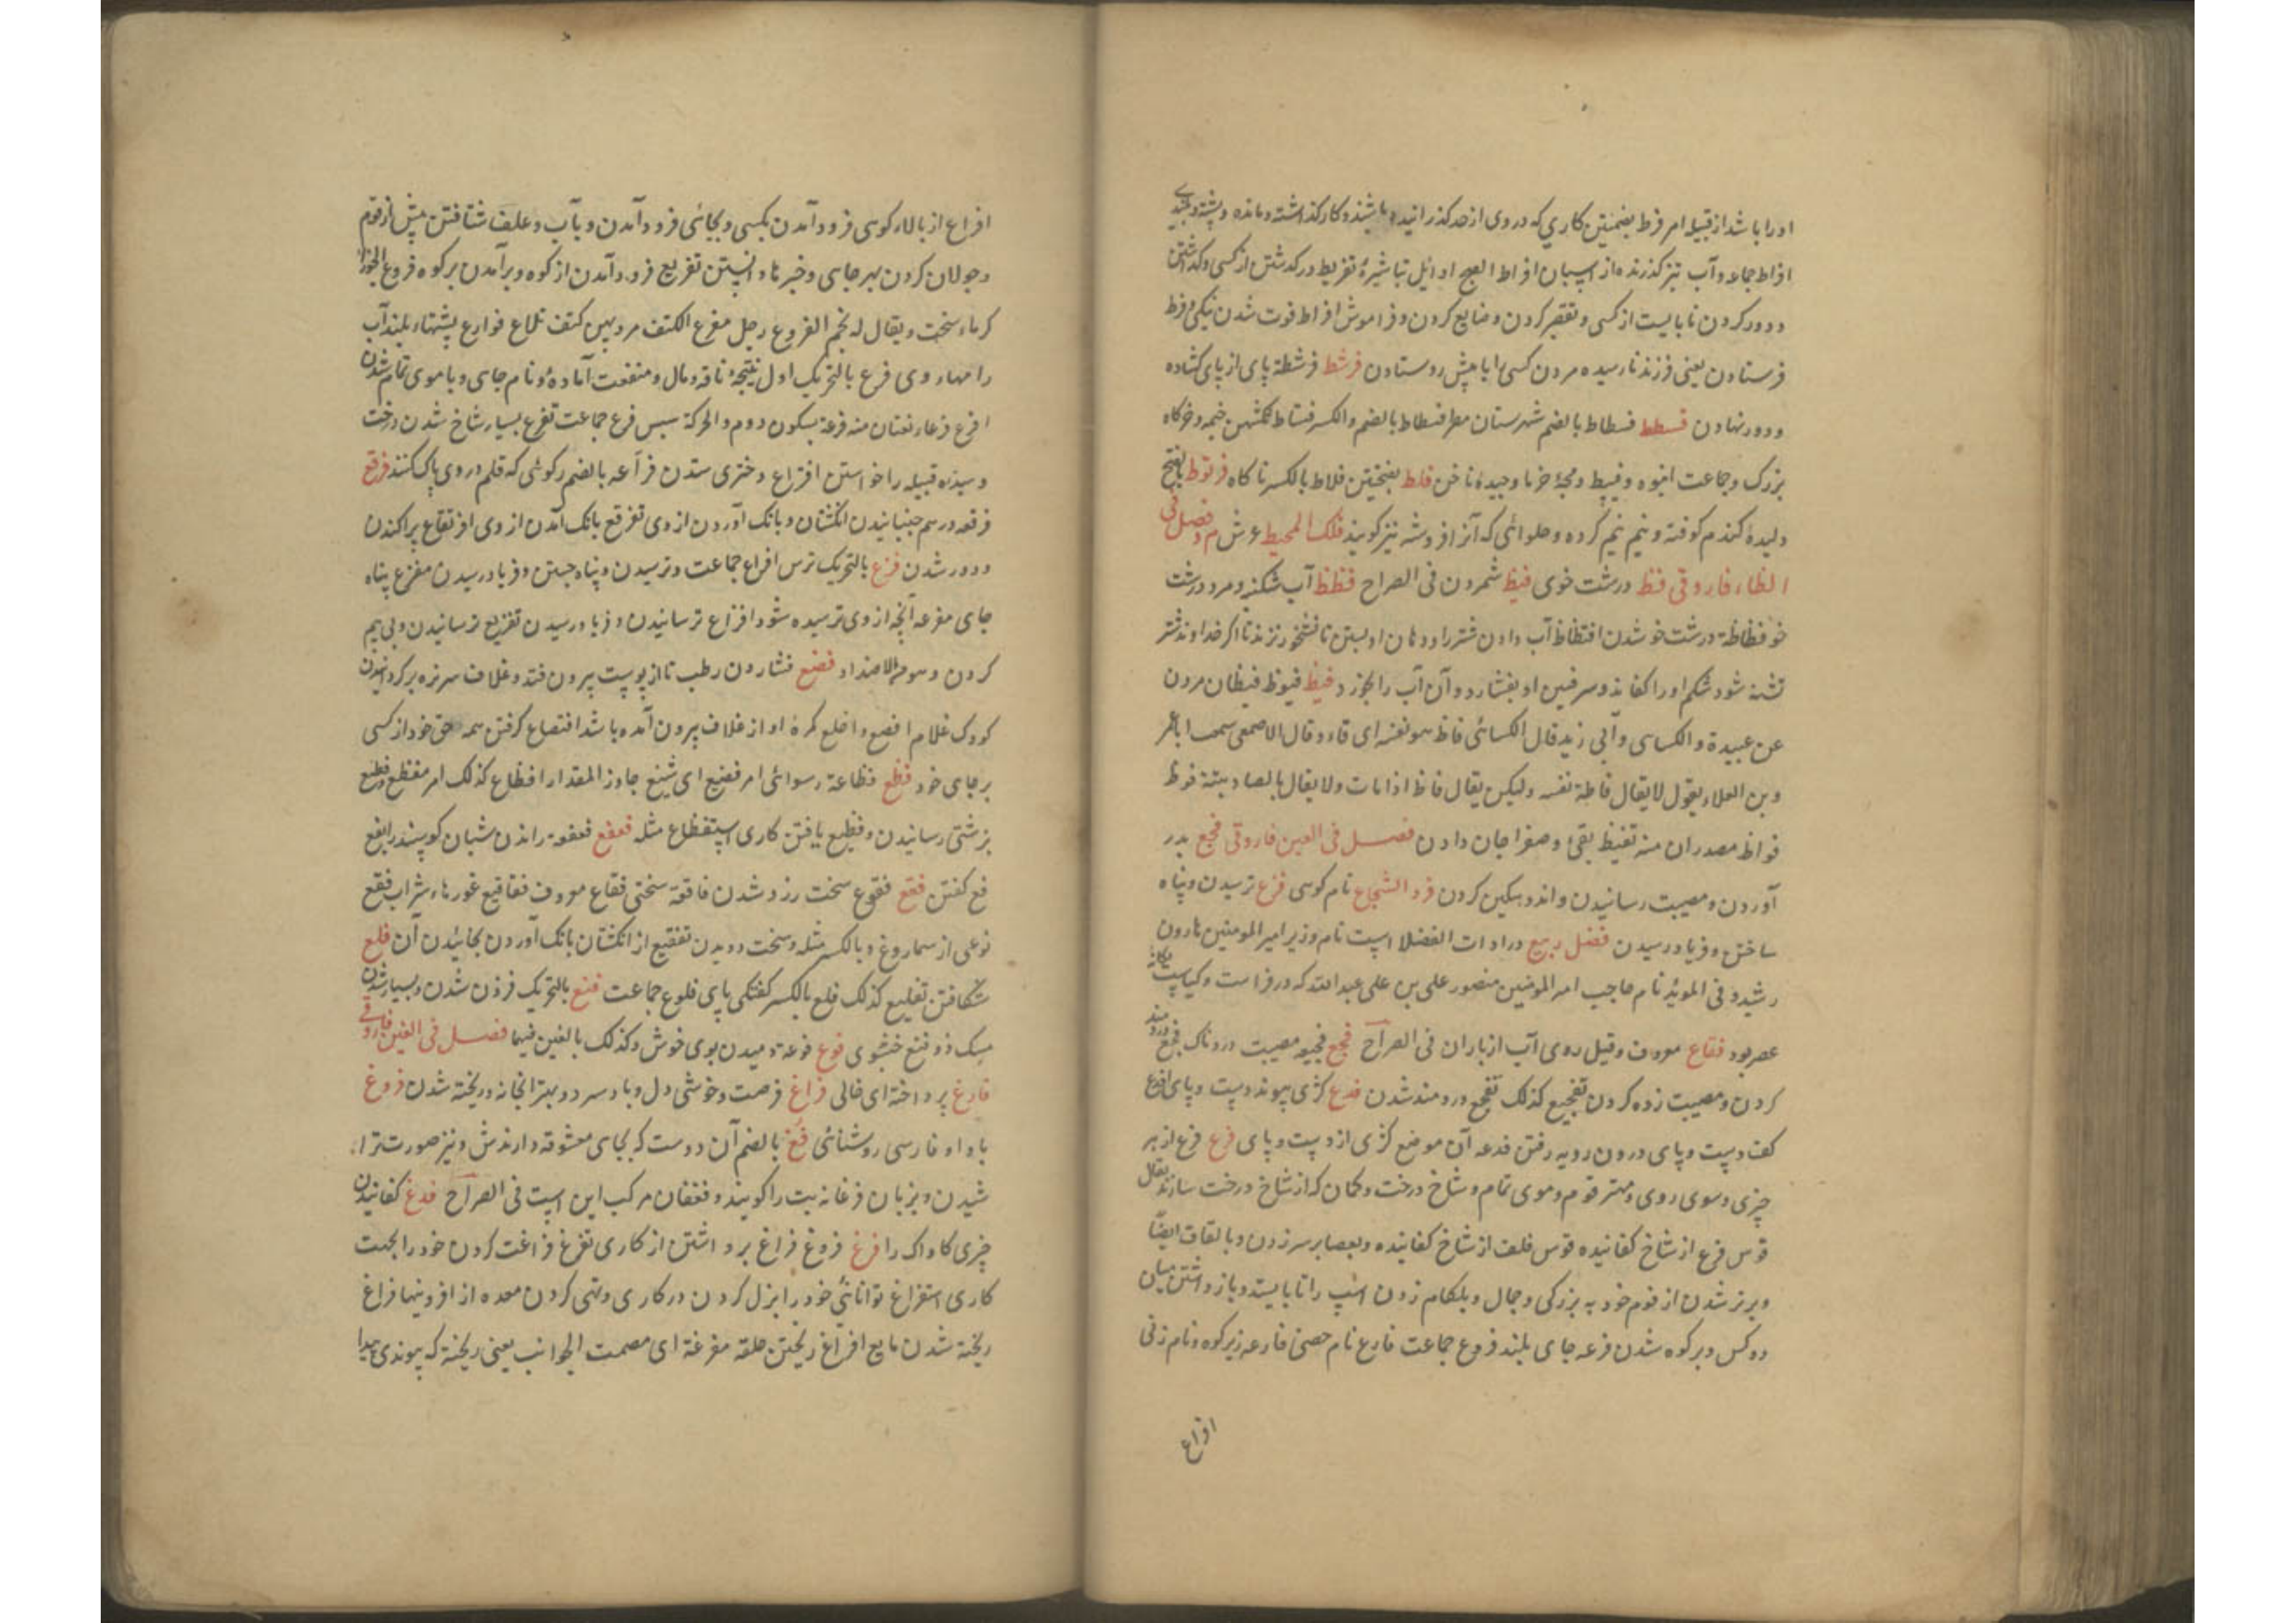 اورا باشد از قبیله امر فرط بضمتین کاری که در وی از حد کذرانیده باشند و کار کذاشته و مانده و پشته و بلندی
افراط جماعه و آب تیز کذرنده از اسپان افراط الصبح اوائل تباشیره تفریط درکذشتن از کسی و کذاشتن
و دور کردن نابایست از کسی و تقصیر کردن و ضایع کردن و فراموش افراط فوت شدن نیکی و فرط
فرستادن یعنی فرزند نارسیده مردن کسی را با پیش رو ستادن فرشط فرشطة پای از پای کشاده
و دور نهادن فسطط فسطاط بالضم شهرستان مصر فسطاط بالضم والکسر فستاط خیمه و خرکاه
بزرک و جماعت انبوه و فسیط و مجهٔ خرما و چیدهٔ ناخن فلط بفتحتین فلاط بالکسر ناکاه فرتوط بالفتح
دلیدهٔ کندم کوفته و نیم نیم کرده و حلوائی که آنرا فروشه نیز کویند فلک المحیط عرش م فصل فی
الظاء فاروقی فظ درشت خوی فیظ شمردن فی الصراح فظظ آب شکنبه و مرد درشت
خو فظاظة درشت خو شدن افتظاظ آب دادن شتر را و دهان او بستن تا نشخوار نزند تا اکر خداوند شتر
تشنه شود شکم او را کفاند و سرقین او بفشارد و آن آب را بخورد فیظ فیوظ فیظان مردن
عن عبیدة والکسای وابی زید قال الکسائی فاظ هو نفسه ای قاء و قال الاصمعی سمعت اباعمر
و بن العلاء یقول لا یقال فاظة نفسه ولیکن یقال فاظ اذا مات ولا یقال بالصاد بتة فوظ
فواظ مصدران منه تفیظ بقیء و صفرا جان دادن فصل فی العین فاروقی فجع بدر
آوردن و مصیبت رسانیدن و اندوهکین کردن فرد الشجاع نام کوسی فزع ترسیدن و پناه
ساختن و فریاد رسیدن فضل ربیع در ادات الفضلا است نام وزیر امیر المومنین هارون
رشید و فی الموید نام حاجب امیر المومنین منصور علی بن علی عبد الله که در فراست و کیاست یکانه
عصر بود فقاع معروف و قیل روی آب از باران فی الصراح فجع فجیعه مصیبت دردناک فجع دردمند
کردن و مصیبت زده کردن تفجیع کذلک تفجع دردمند شدن فدع کژی پیوند دست و پای افدع
کف دست و پای درون رویه رفتن فدعه آن موضع کژی از دست و پای فرع فرع از هر
چیزی و سوی روی و مهتر قوم و موی تمام و شاخ درخت و کمان که از شاخ درخت سازند یقال
قوس فرع از شاخ کفانیده قوس فلق از شاخ کفانیده و بعصا بر سر زدن و بالقاف ایضاً
و برتر شدن از قوم خود به بزرکی و جمال و بلکام زدن اسب را تا بایستد و باز داشتن میان
دو کس و بر کوه شدن فرعه جای بلند فروع جماعت فارع نام حصنی فارعه زبر کوه و نام زنی
افراع
افراع از بالاء کوسی فرود آمدن بکسی و بجائی فرود آمدن و بآب و علف شتافتن پیش از قوم
و جولان کردن بهر جای و خبرها دانستن تفریع فرود آمدن از کوه و برآمدن بر کوه فروع الجوزا
کرماء سخت و یقال له نجم الفروع رجل مفرع الکتف مرد پهن کتف تلاع فوارع پشتهاء بلند آب
راهها روی فرع بالتحریک اول نتیجهٔ ناقه و مال و منفعت آماده و نام جای و با موی تمام شدن
افرع فرعاء نعتان منه فرعة بسکون دوم والحرکة سپس فرع جماعت تفرع بسیار شاخ شدن درخت
و سیدهٔ قبیله را خواستن افتراع دختری ستدن فرآعه بالضم رکوئی که قلم در وی پاک کنند فرقع
فرقعه درسم جنبانیدن انکشتان و بانک آوردن از وی تفرقع بانک آمدن از وی افرنقاع پراکندن
و دور شدن فزع بالتحریک ترس افزاع جماعت و ترسیدن و پناه جستن و فریاد رسیدن مفزع پناه
جای مفزعه آنچه از وی ترسیده شود افزاع ترسانیدن و فریاد رسیدن تفزیع ترسانیدن و بی بیم
کردن و هو من الاضداد فصع فشاردن رطب تا از پوست بیرون فتد و غلاف سر نره بر کردانیدن
کودک غلام افصع و اقلع کمرهٔ او از غلاف بیرون آمده باشد افتصاع کرفتن همه حق خود از کسی
بر جای خود فظع فظاعة رسوائی امر فضیع ای شنیع جاوز المقدار افظاع کذلک امر مفظع فظیع
بزشتی رسانیدن و فظیع یافتن کاری استفظاع مثله فعفع فعفعه راندن شبان کوسپند را بفع
فع کفتن فقع فقوع سخت زرد شدن فاقعه سختی فقاع معروف فقاقیع غورهاء شراب فقع
نوعی از سماروغ و بالکسر مثله و سخت دویدن تفقیع از انکشتان بانک آوردن بخائیدن آن فلع
شکافتن تفلیع کذلک فلع بالکسر کفتکی پای فلوع جماعت فنع بالتحریک فزون شدن و بسیار شدن
مسک ذو فنع خشبوی فوع فوعة دمیدن بوی خوش و کذلک بالغین فیهما فصل فی الغین فاروقی
فارغ پرداخته ای خالی فراغ فرصت و خوشی دل و باد سرد و بهترانجانه و ریخته شدن فروغ
با واو فارسی روشنائی فغ بالضم آن دوست که بجای معشوقه دارندش و نیز صورت ترا
شیدن و بزبان فرغانه بت را کویند و فغفان مرکب این است فی الصراح فدغ کفانیدن
چیزی کاواک را فرغ فروغ فراغ پرداشتن از کاری تفرغ فراغت کردن خود را بجهت
کاری استفراغ توانائی خود را بزل کردن در کاری و تهی کردن معده از افزونیها فراغ
ریخته شدن مایع افراغ ریختن حلقه مفرغة ای مصمت الجوانب یعنی ریخته که پیوندی پیدا